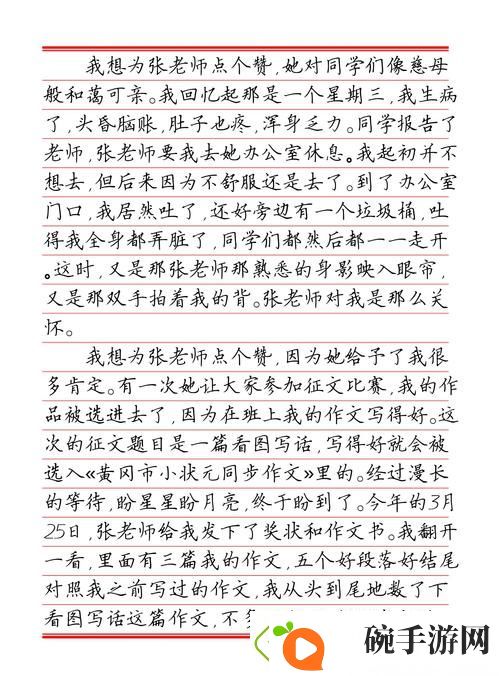 我想为张老师点个赞，她对同学们像慈母
般和蔼可亲。我回忆起那是一个星期三，我生病
了，头昏脑账，肚子也疼，浑身乏力。同学报告了
老师，张老师要我去她办公室休息。我起初并不
想去，但后来因为不舒服还是去了。到了办公室
门口，我居然吐了，还好旁边有一个垃圾桶，吐
得我全身都弄脏了，同学们都然后都一一走开
。这时，又是那张老师那熟悉的身影映入眼帘，
又是那双手拍着我的背。张老师对我是那么关
怀。
我想为张老师点个赞，因为她给予了我很
多肯定。有一次她让大家参加征文比赛，我的作
品被选进去了，因为在班上我的作文写得好。这
次的征文题目是一篇看图写话，写得好就会被
选入《黄冈市小状元同步作文》里的。经过漫长
的等待，盼星星盼月亮，终于盼到了。今年的3月
25日，张老师给我发下了奖状和作文书。我翻开
一看，里面有三篇我的作文，五个好段落好结尾
对照我之前写过的作文，我从头到尾地数了下
看图写话这篇作文，不
碗手游网